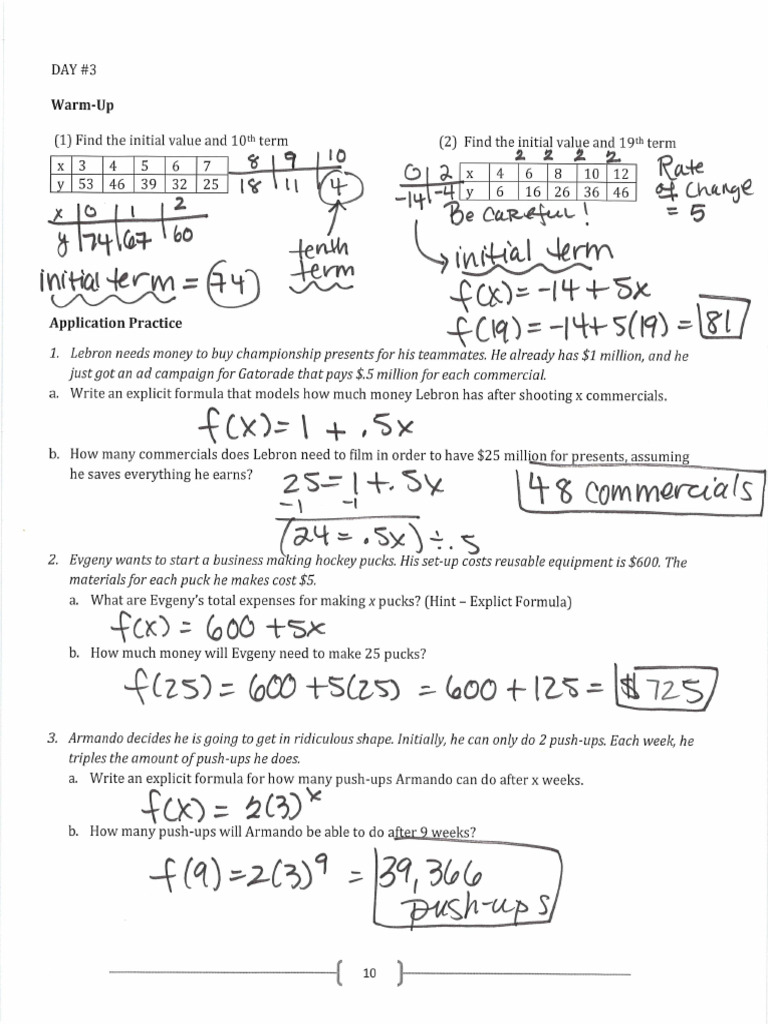 DAY #3
Warm-Up
(1) Find the initial value and 10th term
x 3 4 5 6 7
y 53 46 39 32 25
8 9 10
18 11 4
x 0 1 2
y 74 67 60
tenth
term
initial term = 74
(2) Find the initial value and 19th term
2 2 2 2
0 2
-14 -4
x 4 6 8 10 12
y 6 16 26 36 46
Rate
of Change
= 5
Be careful!
initial term
f(x) = -14 + 5x
f(19) = -14 + 5(19) = 81
Application Practice
1. Lebron needs money to buy championship presents for his teammates. He already has $1 million, and he
just got an ad campaign for Gatorade that pays $.5 million for each commercial.
a. Write an explicit formula that models how much money Lebron has after shooting x commercials.
f(x) = 1 + .5x
b. How many commercials does Lebron need to film in order to have $25 million for presents, assuming
he saves everything he earns?
25 = 1 + .5x
-1 -1
(24 = .5x) ÷ .5
48 commercials
2. Evgeny wants to start a business making hockey pucks. His set-up costs reusable equipment is $600. The
materials for each puck he makes cost $5.
a. What are Evgeny's total expenses for making x pucks? (Hint – Explict Formula)
f(x) = 600 + 5x
b. How much money will Evgeny need to make 25 pucks?
f(25) = 600 + 5(25) = 600 + 125 = $725
3. Armando decides he is going to get in ridiculous shape. Initially, he can only do 2 push-ups. Each week, he
triples the amount of push-ups he does.
a. Write an explicit formula for how many push-ups Armando can do after x weeks.
f(x) = 2(3)^x
b. How many push-ups will Armando be able to do after 9 weeks?
f(9) = 2(3)^9 = 39,366
push-ups
10